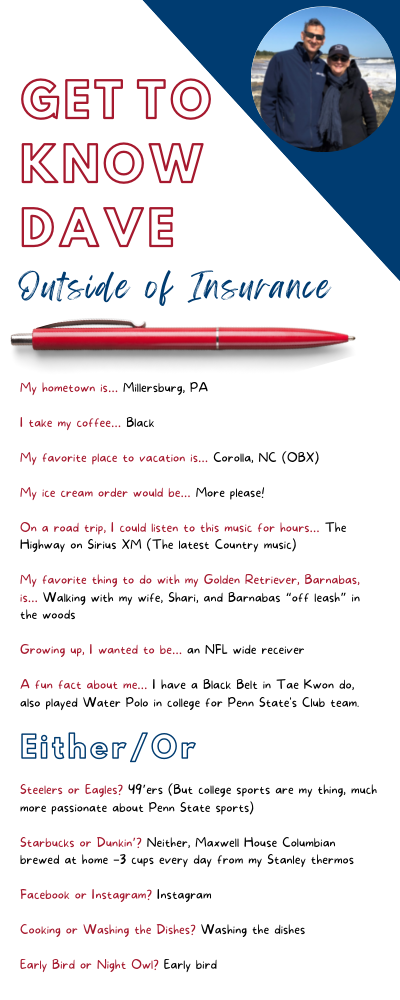 GET TO
KNOW
DAVE
Outside of Insurance
My hometown is... Millersburg, PA
I take my coffee... Black
My favorite place to vacation is... Corolla, NC (OBX)
My ice cream order would be... More please!
On a road trip, I could listen to this music for hours... The
Highway on Sirius XM (The latest Country music)
My favorite thing to do with my Golden Retriever, Barnabas,
is... Walking with my wife, Shari, and Barnabas “off leash” in
the woods
Growing up, I wanted to be... an NFL wide receiver
A fun fact about me... I have a Black Belt in Tae Kwon do,
also played Water Polo in college for Penn State's Club team.
Either/Or
Steelers or Eagles? 49'ers (But college sports are my thing, much
more passionate about Penn State sports)
Starbucks or Dunkin'? Neither, Maxwell House Columbian
brewed at home -3 cups every day from my Stanley thermos
Facebook or Instagram? Instagram
Cooking or Washing the Dishes? Washing the dishes
Early Bird or Night Owl? Early bird